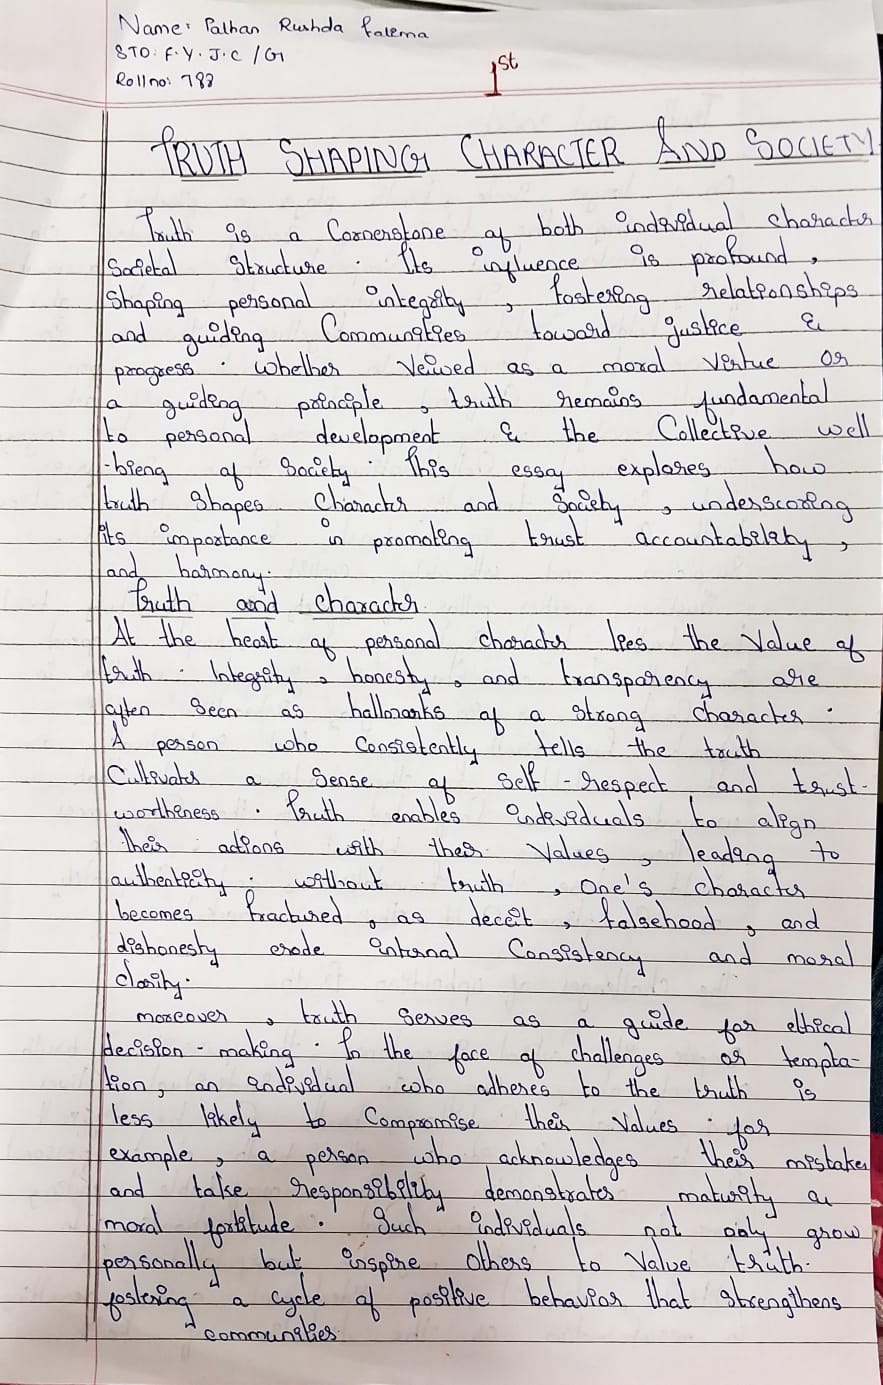 Name: Pathan Rushda fatema
STD: F.Y.J.C / G1
Roll no: 788
1st
TRUTH SHAPING CHARACTER AND SOCIETY
Truth is a Cornerstone of both individual character
Societal Structure. Its influence is profound,
Shaping personal integrity, fostering relationships
and guiding Communities toward justice &
progress. whether veiwed as a moral virtue or
a guiding principle, truth remains fundamental
to personal development & the Collective well
-bieng of Society. This essay explores how
truth Shapes Character and Society, underscoring
its importance in promoting trust accountability,
and harmony.
Truth and character.
At the heart of personal character lies the Value of
truth. Integrity, honesty, and transparency are
often Seen as hallmarks of a strong character.
A person who Consistently tells the truth
Cultivates a Sense of Self-respect and trust-
worthiness. Truth enables individuals to align
their actions with their Values, leading to
authenticity. without truth, one's character
becomes fractured, as deceit, falsehood, and
dishonesty erode internal Consistency and moral
clarity.
moreover, truth Serves as a guide for ethical
decision-making. In the face of challenges or tempta-
tion, an individual who adheres to the truth is
less likely to Compromise their Values. for
example, a person who acknowledges their mistakes
and take responsibility demonstrates maturity
moral fortitude. Such individuals not only grow
personally but inspire Others to Value truth.
fostering a cycle of positive behavior that strengthens
communities.